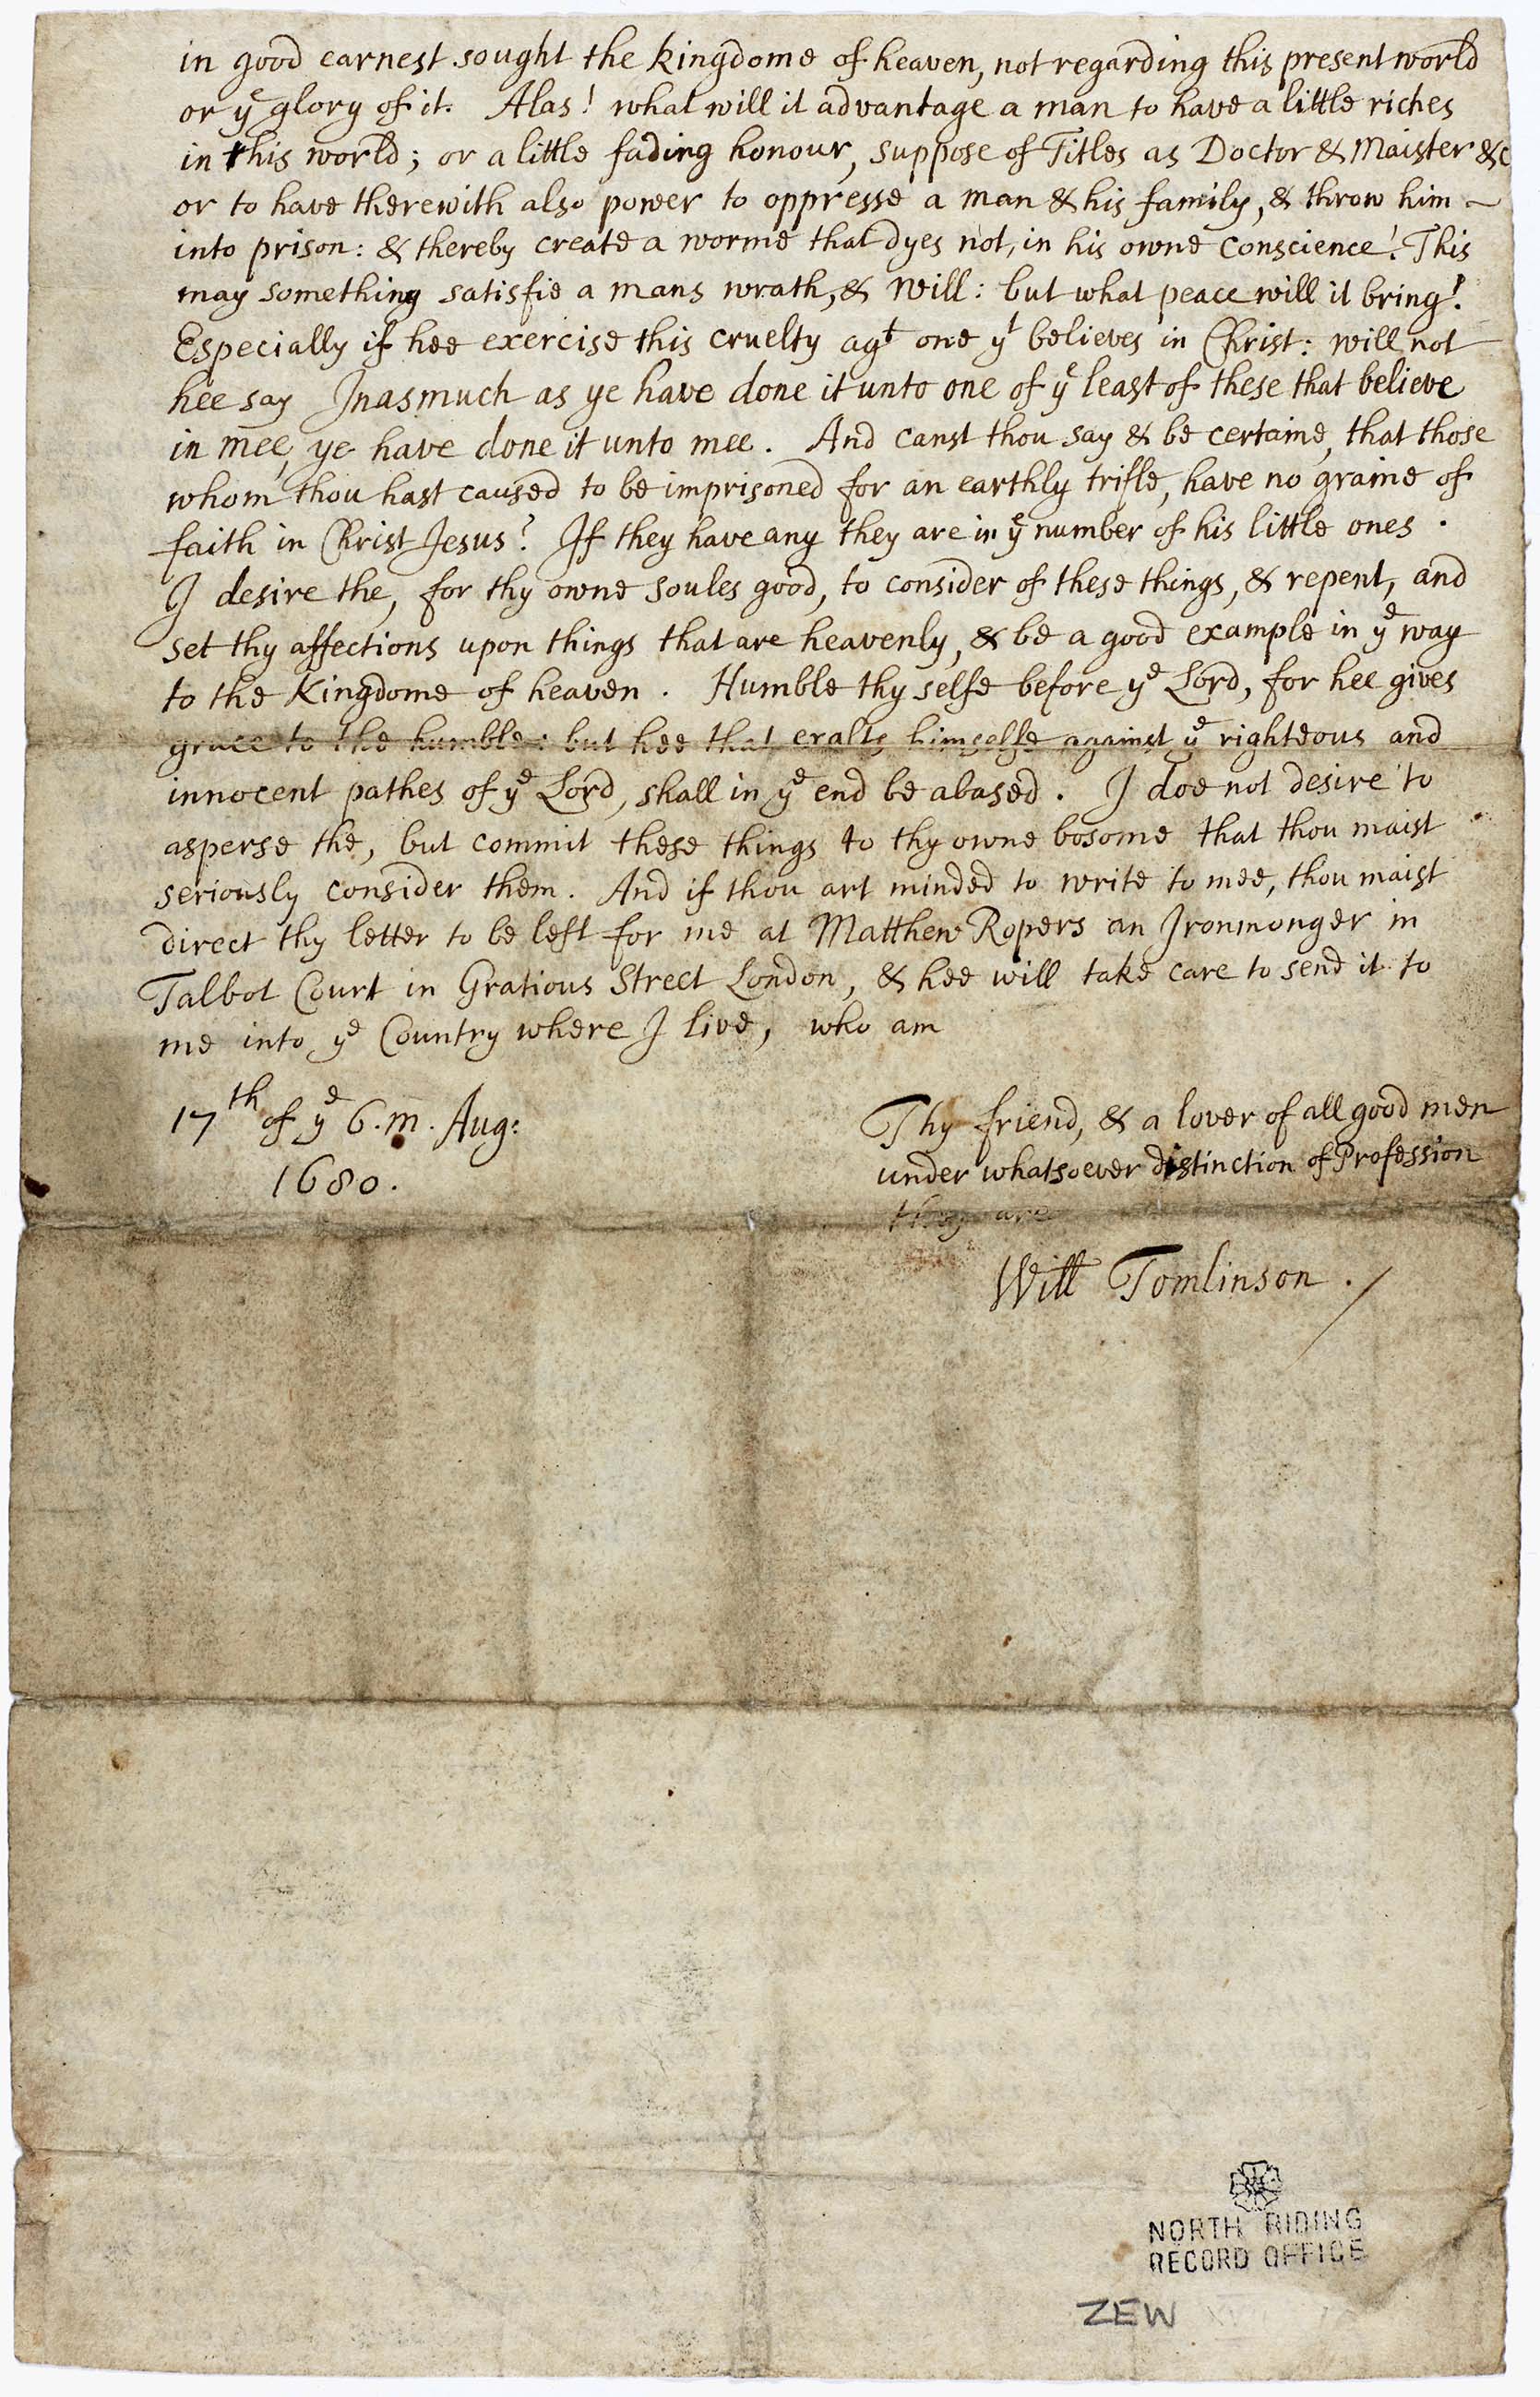 in good earnest sought the kingdome of heaven, not regarding this present world
or yᵉ glory of it. Alas! what will it advantage a man to have a little riches
in this world; or a little fading honour, suppose of Titles as Doctor & Maister &c
or to have therewith also power to oppresse a man & his family, & throw him ~
into prison: & thereby create a worme that dyes not, in his owne Conscience! This
may something satisfie a mans wrath, & will: but what peace will it bring?
Especially if hee exercise this cruelty agᵗ one yᵗ believes in Christ: will not
hee say Inasmuch as ye have done it unto one of yᵉ least of these that believe
in mee, ye have done it unto mee. And canst thou say & be certaine, that those
whom thou hast caused to be imprisoned for an earthly trifle, have no graine of
faith in Christ Jesus? If they have any they are in yᵉ number of his little ones.
I desire the, for thy owne soules good, to consider of these things, & repent, and
set thy affections upon things that are heavenly, & be a good example in yᵉ way
to the Kingdome of heaven. Humble thy selfe before yᵉ Lord, for hee gives
grace to the humble: but hee that exalts himselfe against yᵉ righteous and
innocent pathes of yᵉ Lord, shall in yᵉ end be abased. I doe not desire to
asperse the, but commit these things to thy owne bosome that thou maist
seriously consider them. And if thou art minded to write to mee, thou maist
direct thy letter to be left for me at Matthew Ropers an Ironmonger in
Talbot Court in Gratious Street London, & hee will take care to send it to
me into yᵉ Country where I live, who am
17ᵗʰ of yᵉ 6. m. Aug:
1680.
Thy friend, & a lover of all good men
under whatsoever distinction of Profession
they are
Will Tomlinson.
NORTH RIDING
RECORD OFFICE
ZEW